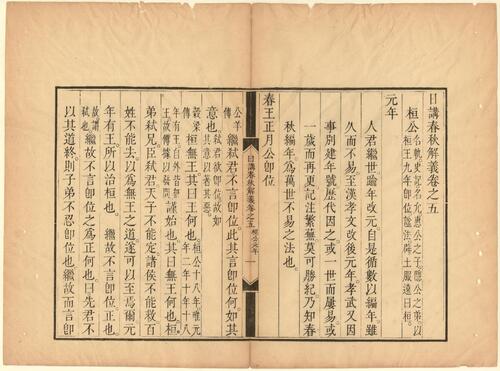 日講春秋解義卷之五
桓公
名軌史記名允惠公之子隱公之弟以
桓王九年卽位謚法闢土服遠曰桓
元年
人君繼世踰年改元自是循數以編年雖
久而不易至漢孝文改後元年孝武又因
事別建年號歷代因之或一世而屢易或
一歲而再更記注繁蕪莫可勝紀乃知春
秋編年為萬世不易之法也
春王正月公卽位
日講春秋解義卷之五 桓公元年 一
公羊
傳
繼弑君不言卽位此其言卽位何如其
意也
弑君欲卽位故如
其意以著其惡
穀梁
傳
桓無王其曰王何也
桓公十八年惟元
年二年十年十八
年有王自外皆無
王故傳據以發問
謹始也其曰無王何也桓
弟弑兄臣弑君天子不能定諸侯不能救百
姓不能去以為無王之道遂可以至焉爾元
年有王所以治桓也
諸
弑也
繼故不言卽位正也
繼故不言卽位之為正何也曰先君不
以其道終則子弟不忍卽位也繼故而言卽